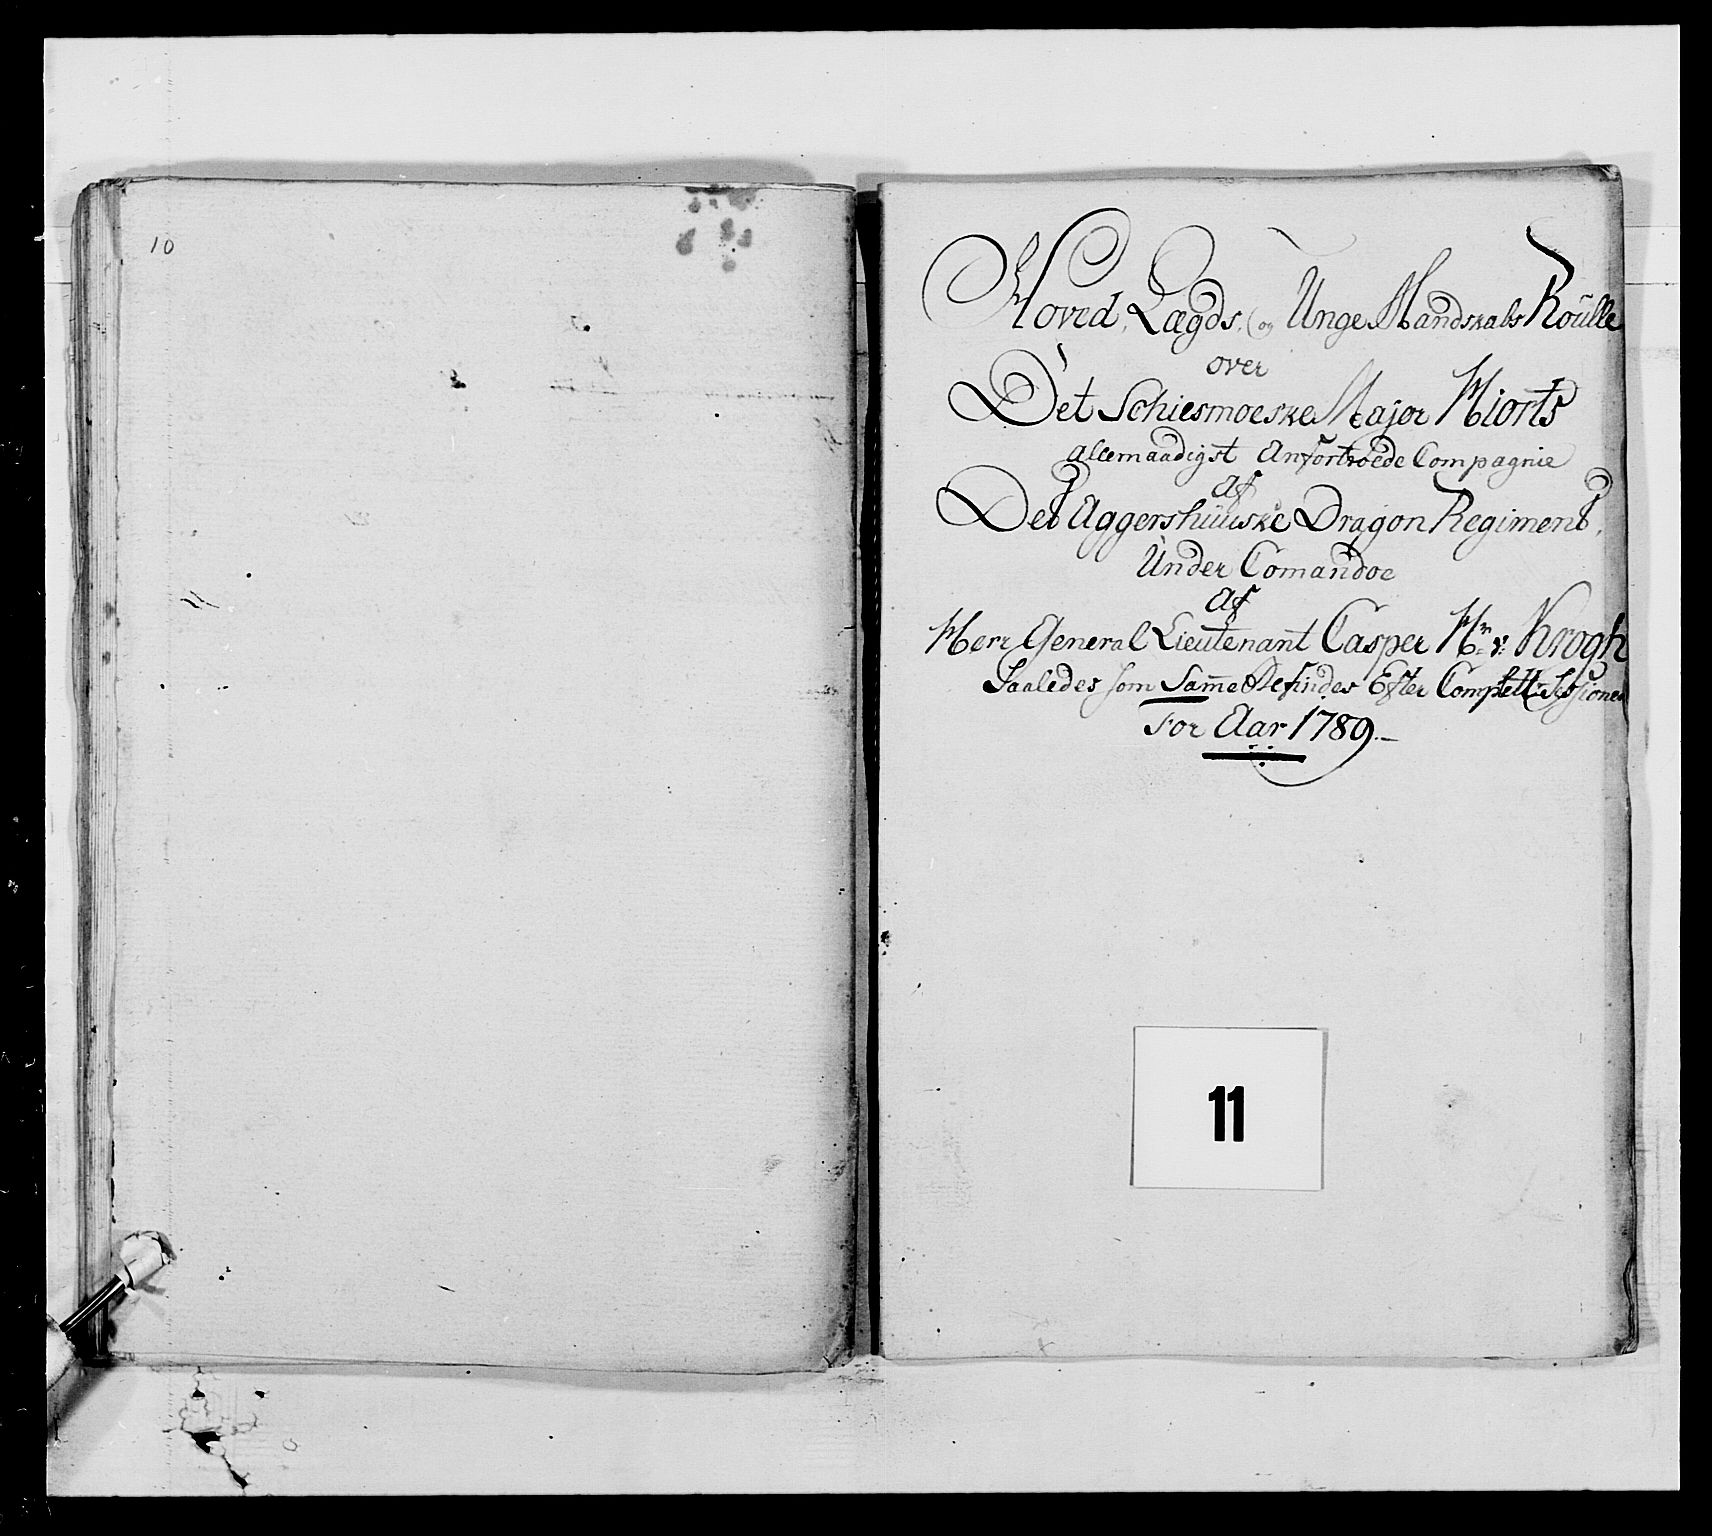 10
Hoved, Lægds, og Unge Mandskabs Roulle
over
Det Schiesmoeske Major Hiorts
allernaadigst Anfortroede Compagnie
Af
Det Aggershuuske Dragon Regiment,
Under Comandoe
Af
Herr General Lieutenant Casper Hrn v: Krogh
Saaledes som Same Befindes Efter Complett: Sessionen
For Aar 1789.
11